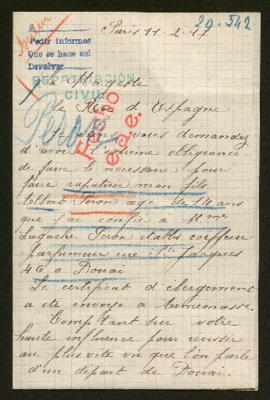 Paris 11-2-17
20.542
Pedir informes
Que se hace así
Devolver
REPATRIACIÓN
CIVIL
a sa Majesté
le Roi d'Espagne
Je viens vous demander
d'avoir l'extrême obligeance
de faire le nécessaire pour
faire rapatrier mon fils
Albert Péron âgé de 14 ans
que j'ai confié à Mme
Péron établi coiffeur
parfumeur rue St Jacques
46 à Douai.
Le certificat d'ébergement
a été envoyé à Annemasse.
Comptant sur votre
haute influence pour réussir
au plus vite vu que l'on parle
d'un départ de Douai.